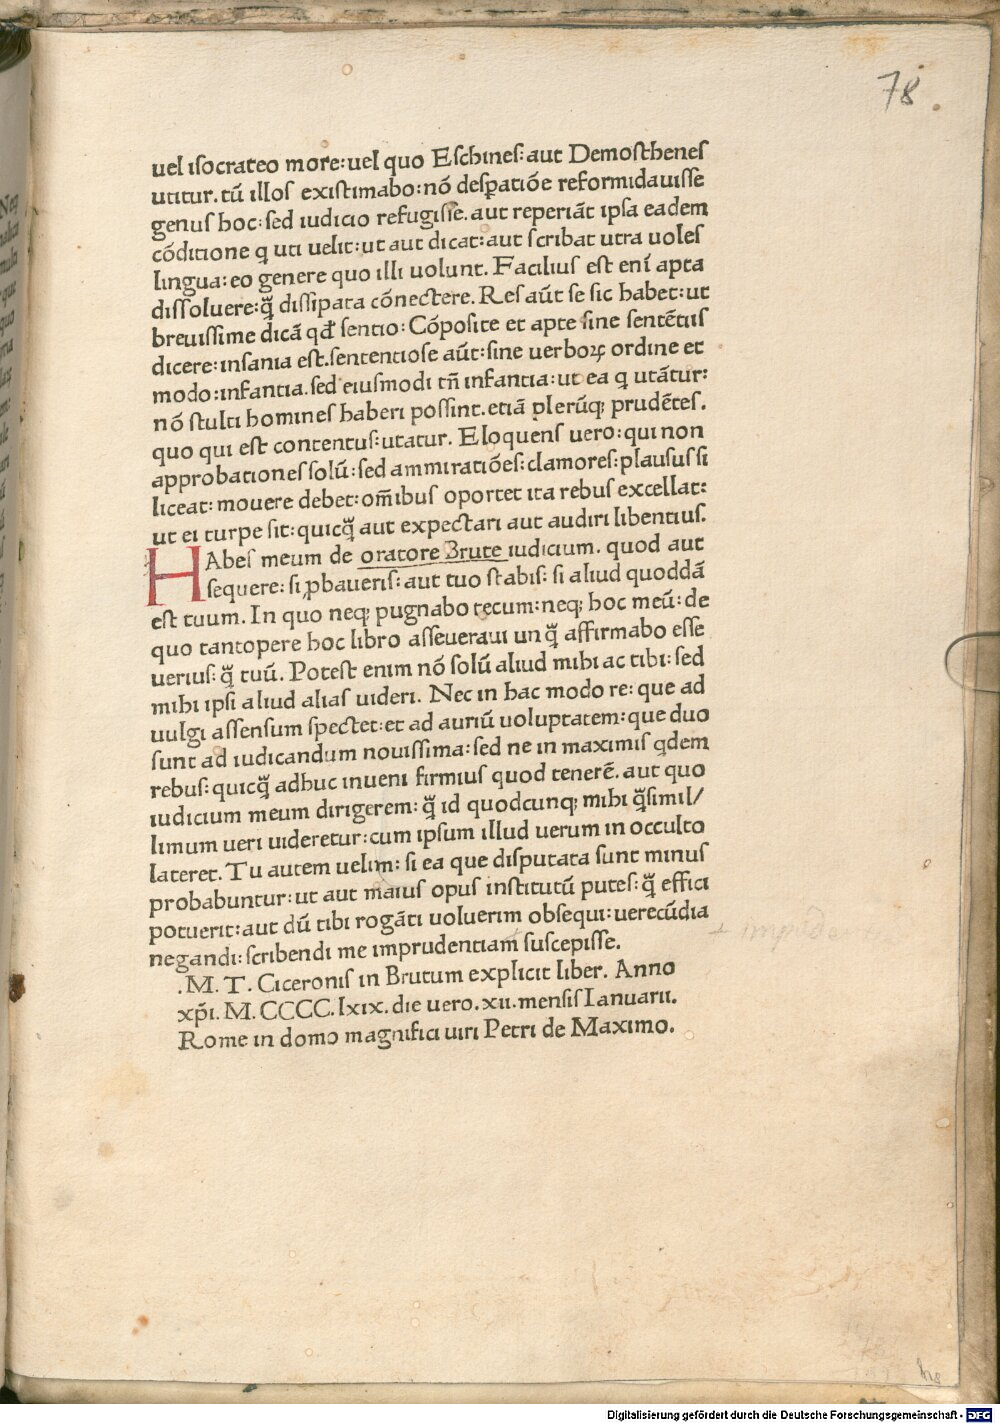 78
uel isocrateo more: uel quo Eschines: aut Demosthenes
utitur. tū illos existimabo: nō despatiōe reformidauisse
genus hoc: sed iudicio refugisse. aut reperiāt ipsa eadem
cōditione q uti uelit: ut aut dicat: aut scribat utra uoles
lingua: eo genere quo illi uolunt. Facilius est enī apta
dissoluere: q̄ dissipata cōnectere. Res aūt se sic habet: ut
breuissime dicā qđ sentio: Cōposite et apte sine sentētiis
dicere: insania est. sententiose aūt: sine uerboꝝ ordine et
modo: infantia. sed eiusmodi tn̄ infantia: ut ea q utātur:
nō stulti homines haberi possint. etiā plerūq; prudētes.
quo qui est contentus: utatur. Eloquens uero: qui non
approbationes solū: sed ammiratiōes: clamores: plausus si
liceat: mouere debet: om̄ibus oportet ita rebus excellat:
ut ei turpe sit: quicq̄ aut expectari aut audiri libentius.
HAbes meum de oratore Brute iudicium. quod aut
sequere: si ꝓbaueris: aut tuo stabis: si aliud quoddā
est tuum. In quo neq; pugnabo tecum: neq; hoc meū: de
quo tantopere hoc libro asseueraui unq̄ affirmabo esse
uerius: q̄ tuū. Potest enim nō solū aliud mihi ac tibi: sed
mihi ipsi aliud alias uideri. Nec in hac modo re: que ad
uulgi assensum spectet: et ad auriū uoluptatem: que duo
sunt ad iudicandum nouissima: sed ne in maximis qdem
rebus: quicq̄ adhuc inueni firmius quod tenerē. aut quo
iudicium meum dirigerem: q̄ id quodcunq; mihi q̄simil/
limum ueri uideretur: cum ipsum illud uerum in occulto
lateret. Tu autem uelim: si ea que disputata sunt minus
probabuntur: ut aut maius opus institutū putes: q̄ effici
potuerit: aut dū tibi rogāti uoluerim obsequi: uerecūdia
negandi: scribendi me imprudentiam suscepisse.
.M. T. Ciceronis in Brutum explicit liber. Anno
xp̄i. M. CCCC. lxix. die uero. xii. mensis Ianuarii.
Rome in domo magnifici uiri Petri de Maximo.
Digitalisierung gefördert durch die Deutsche Forschungsgemeinschaft - DFG